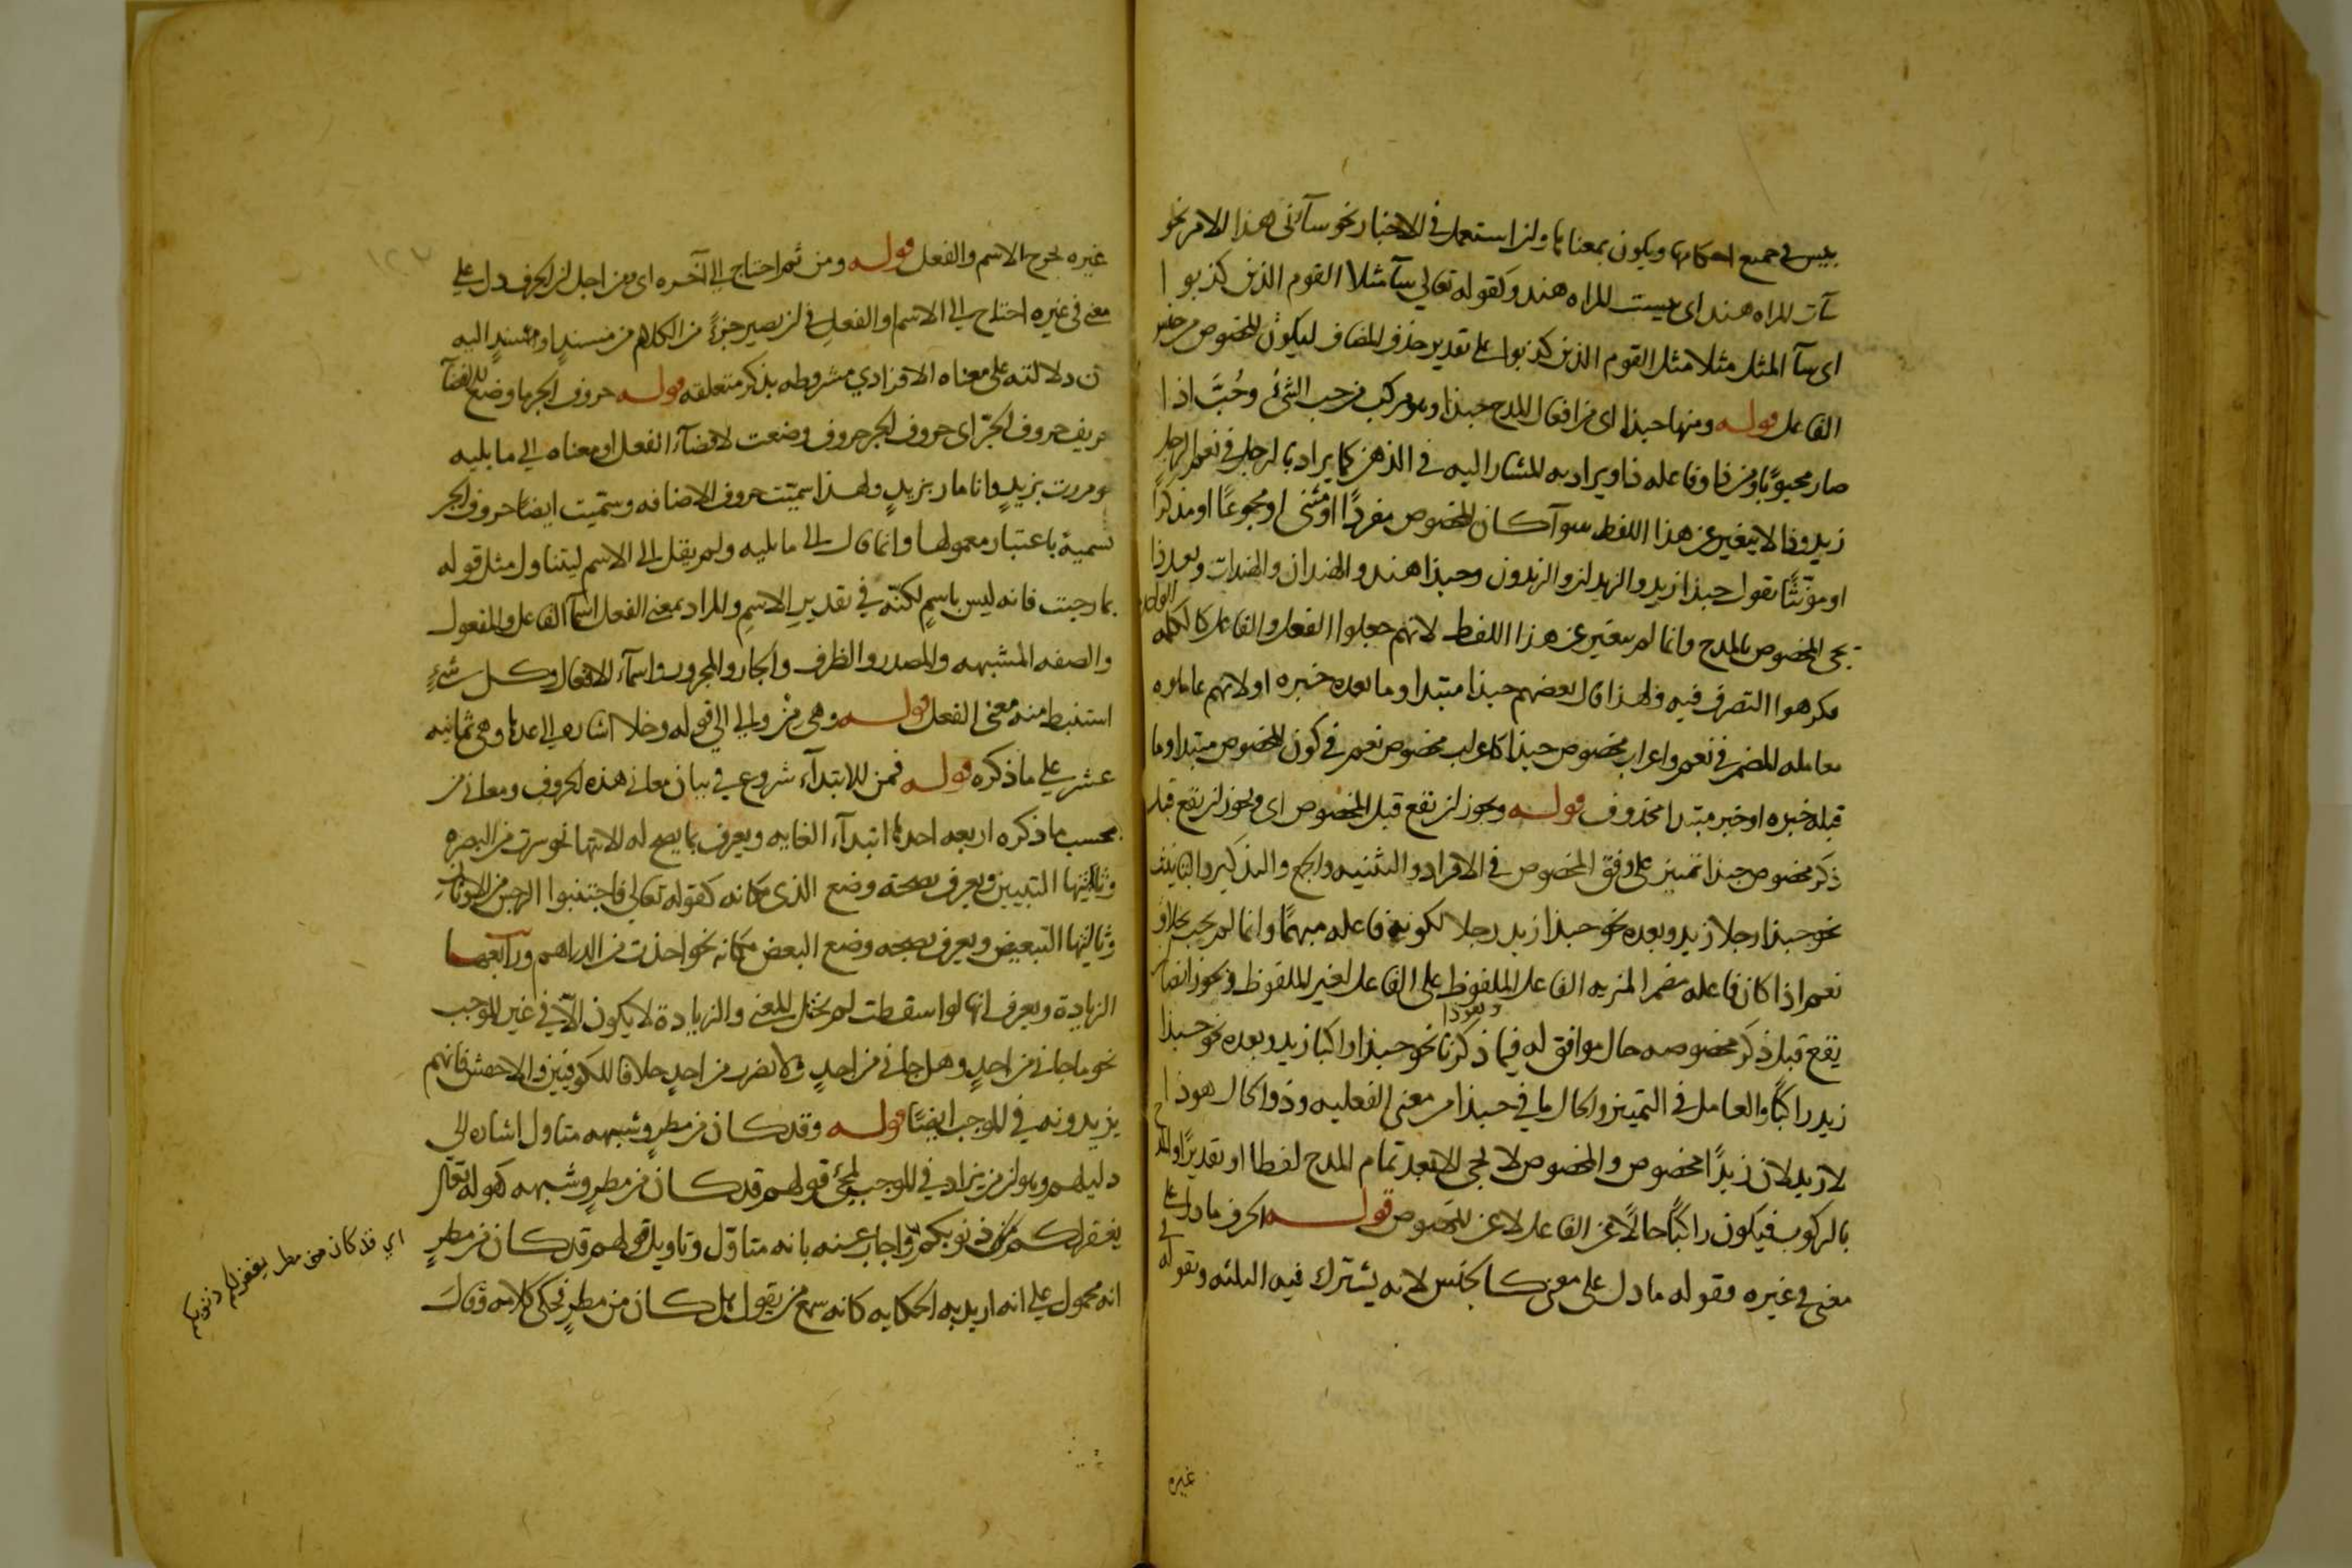 بيس في جميع احكامها ويكون بمعناها ولن استعمل في الاخبار نحو سآئنى هذا الامر نحو
سآت المراه هند اى بيست المراه هند وكقوله تعالي سآ مثلا القوم الذين كذبوا
اى سآ المثل مثلا مثل القوم الذين كذبوا على تقدير حذف المضاف ليكون المخصوص من جنس
الفاعل قوله ومنها حبذا اى من افعال المدح حبذا وهو مركب من حب الشئ وحُبَّ اذا
صار محبوبًا ومن ذا وفاعله ذا ويراد به المشار اليه في الذهن كما يراد بالرجل في نعم الرجل
زيد وذا لا يتغير عن هذا اللفظ سوآ كان المخصوص مفردًا او مثنى او مجموعًا او مذكرًا
او مؤنثًا تقول حبذا زيد والزيدان والزيدون وحبذا هند والهندان والهندات وبعد ذا
يجى المخصوص بالمدح وانما لم يتغير عن هذا اللفظ لانهم جعلوا الفعل والفاعل كالكلمه الواحده
فكرهوا التصرف فيه ولهذا قال بعضهم حبذا مبتدا وما بعده خبره او لانهم عاملوه
معامله المضمر في نعم واعراب مخصوص حبذا كاعراب مخصوص نعم في كون المخصوص مبتدا وما
قبله خبره او خبر مبتدا محذوف قوله ويجوز لن يقع قبل المخصوص اى ويجوز لن يقع قبل
ذكر مخصوص حبذا تمييز على وفق المخصوص في الافراد والتثنيه والجمع والتذكير والتانيث
نحو حبذا رجلا زيد وبعده نحو حبذا زيد رجلا لكون فاعله مبهمًا وانما لم يجب بخلاف
نعم اذا كان فاعله مضمرا لمزيه الفاعل الملفوظ على الفاعل الغير الملفوظ ويجوز ايضا ان
يقع قبل ذكر مخصوصه وبعده حال موافق له فيما ذكرنا نحو حبذا راكبا زيد وبعده نحو حبذا
زيد راكبًا والعامل في التمييز والحال ما في حبذا من معنى الفعليه وذو الحال هو ذا
لا زيد لان زيدًا مخصوص والمخصوص لا يجى الا بعد تمام المدح لفظا او تقديرًا والمدح
بالركوب فيكون راكبًا حالًا عن الفاعل لا عن المخصوص قوله الحرف ما دل على
معنى في غيره فقوله ما دل على معنى كالجنس لانه يشترك فيه الثلثه وبقوله في
غيره
غيره يخرج الاسم والفعل قوله ومن ثم احتاج الي آخره اى ومن اجل لن الحرف دل على
معنى في غيره احتاج الي الاسم او الفعل في لن يصير جزءً من الكلام من مسندٍ او مسندٍ اليه
ن دلالته على معناه الافرادي مشروطه بذكر متعلقه قوله حروف الجر ما وضع للافضآ
حروف الجرّ اى حروف الجر حروف وضعت لافضآء الفعل او معناه الي ما يليه
ومررت بزيدٍ وانا مار بزيدٍ ولهذا سميت حروف الاضافه وسميت ايضًا حروف الجر
تسمية باعتبار معمولها وانما قال الي ما يليه ولم يقل الي الاسم ليتناول مثل قوله
بما رحبت فانه ليس باسمٍ لكنّه في تقدير الاسمِ والمراد بمعنى الفعل اسمآ الفاعل والمفعول
والصفه المشبهه والمصدر والظرف والجار والمجرور واسمآء الافعال وكل شئٍ
استنبط منه معنى الفعل قوله وهي من والي الي قوله وخلا اشاره الي عددها وهى ثمانيه
عشر على ما ذكره قوله فمن للابتدآء شروع في بيان معاني هذه الحروف ومعاني من
بحسب ما ذكره اربعه احدها ابتدآء الغايه ويعرف بما يصح له الانتها نحو سرت من البصره
وثانيتها التبيين ويعرف بصحة وضع الذى مكانه كقوله تعالي فاجتنبوا الرجس من الاوثان
وثالثتها التبعيض ويعرف بصحه وضع البعض مكانه نحو اخذت من الدراهم ورابعها
الزيادة ويعرف بانها لو اسقطت لم يختل المعنى والزيادة لا يكون الّا في غير الموجب
نحو ما جاني من احدٍ وهل جاني من احدٍ ولا تضرب من احدٍ خلافا للكوفيين والاخفش فانهم
يزيدونه في الموجب ايضًا قوله وقد كان من مطرٍ وشبهه متاول اشاره الي
دليلهم وهو لن من يزاد في الموجب لمجئ قولهم قد كان من مطرٍ وشبهه كقوله تعالي
يغفر لكم من ذنوبكم واجاب عنه بانه متاوّل وتاويل قولهم قد كان من مطرٍ
انه محمول على انه اريد به الحكايه كانه سمع من يقول هل كان من مطرٍ فحكى كلامه وقال
اي قد كان من مطر يغفر لكم ذنوبكم